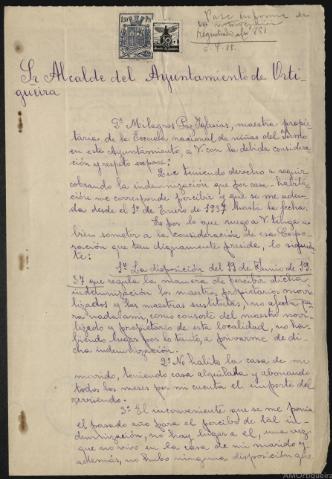 Pase informe de
registrado al nº 851
Sr Alcalde del Ayuntamiento de Orti-
gueira
Dª Milagros Paz Iglesias, maestra propie-
taria de la Escuela nacional de niñas del
en este Ayuntamiento, a V. con la debida considera-
ción y respeto expone:
Que teniendo derecho a seguir
cobrando la indemnización que por casa-habita-
ción me corresponde percibir y que se me adeu-
da desde el 1º de Enero de 1937 hasta la fecha.
Es por lo que ruego a V. tenga a
bien someter a la consideración de esa Corpo-
ración que tan dignamente preside, lo siguien-
te:
1º La disposición del 19 de Junio de 19
37 que regula la manera de percibir dicha
indemnización los maestros propietarios movi-
lizados y las maestras sustitutas, no afecta pa-
ra nada a mí, como consorte del maestro movi-
lizado y propietario de esta localidad, no ha-
biendo lugar por lo tanto, a privarme de di-
cha indemnización.
2º No habito la casa de mi
marido, teniendo casa alquilada y abonando
todos los meses por mi cuenta el importe del
arriendo.
3º El inconveniente que se me ponía
el pasado año para el percibo de tal in-
demnización, no hay lugar a él, una vez
que no vivo en la casa de mi marido y
además, no hubo ninguna disposición que
AMOrtigueira